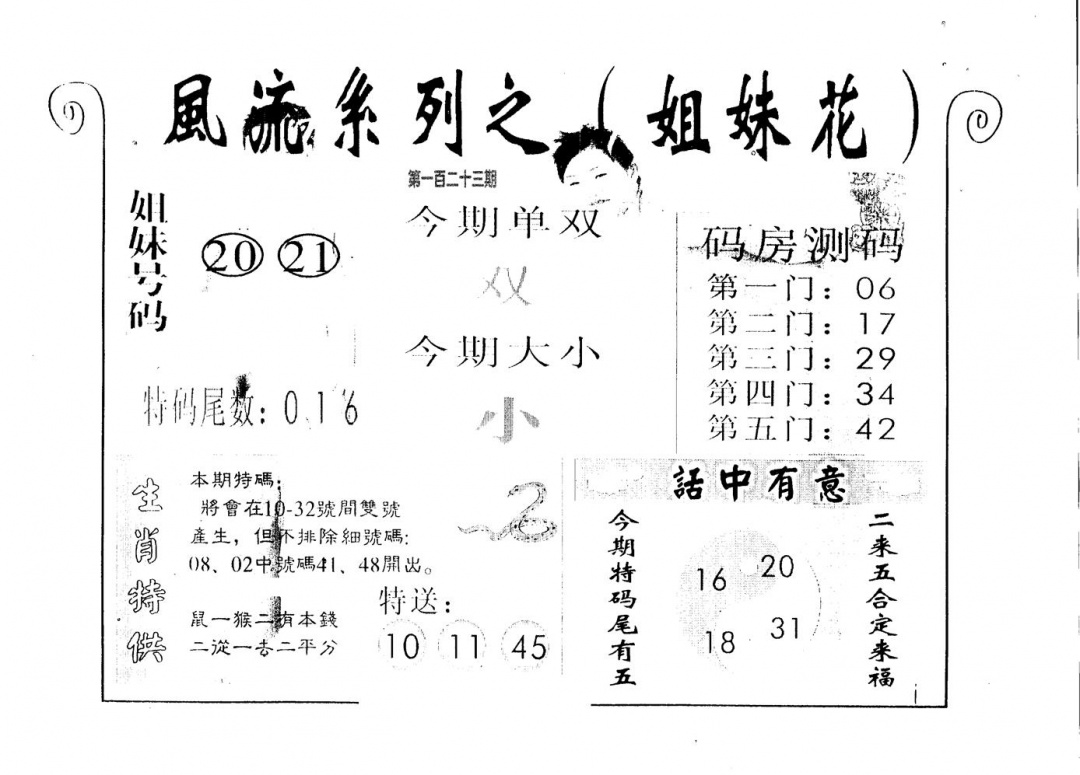 風流系列之（姐妹花）
第一百二十三期
姐妹号码
20 21
今期单双
双
今期大小
小
特码尾数：0 1 6
码房测码
第一门：06
第二门：17
第三门：29
第四门：34
第五门：42
生肖特供
本期特碼：
將會在10-32號間雙號
產生，但不排除細號碼：
08、02中號碼41、48開出。
鼠一猴二有本錢
二從一去二平分
特送：
10 11 45
話中有意
今期特码尾有五
16 20
18 31
二来五合定来福